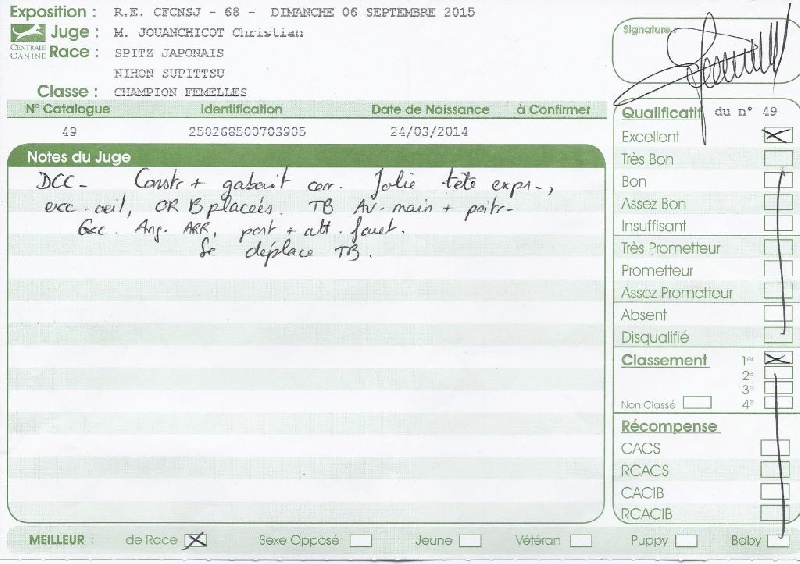 Exposition : R.E. CFCNSJ - 68 - DIMANCHE 06 SEPTEMBRE 2015
Signature :
CENTRALE CANINE
Juge : M. JOUANCHICOT Christian
Race : SPITZ JAPONAIS
NIHON SUPITTSU
Classe : CHAMPION FEMELLES
N° Catalogue Identification Date de Naissance à Confirmer
49 250268500703905 24/03/2014
Notes du Juge
DCC - Constr + gabarit corr. Jolie tête expr.,
exc. oeil, OR B placées. TB Av. main + poitr.
Exc. Ang. ARR, port + att. fouet.
Se déplace TB.
Qualificatif du n° 49
Excellent
Très Bon
Bon
Assez Bon
Insuffisant
Très Prometteur
Prometteur
Assez Prometteur
Absent
Disqualifié
Classement 1er
2e
3e
Non Classé 4e
Récompense
CACS
RCACS
CACIB
RCACIB
MEILLEUR : de Race Sexe Opposé Jeune Vétéran Puppy Baby